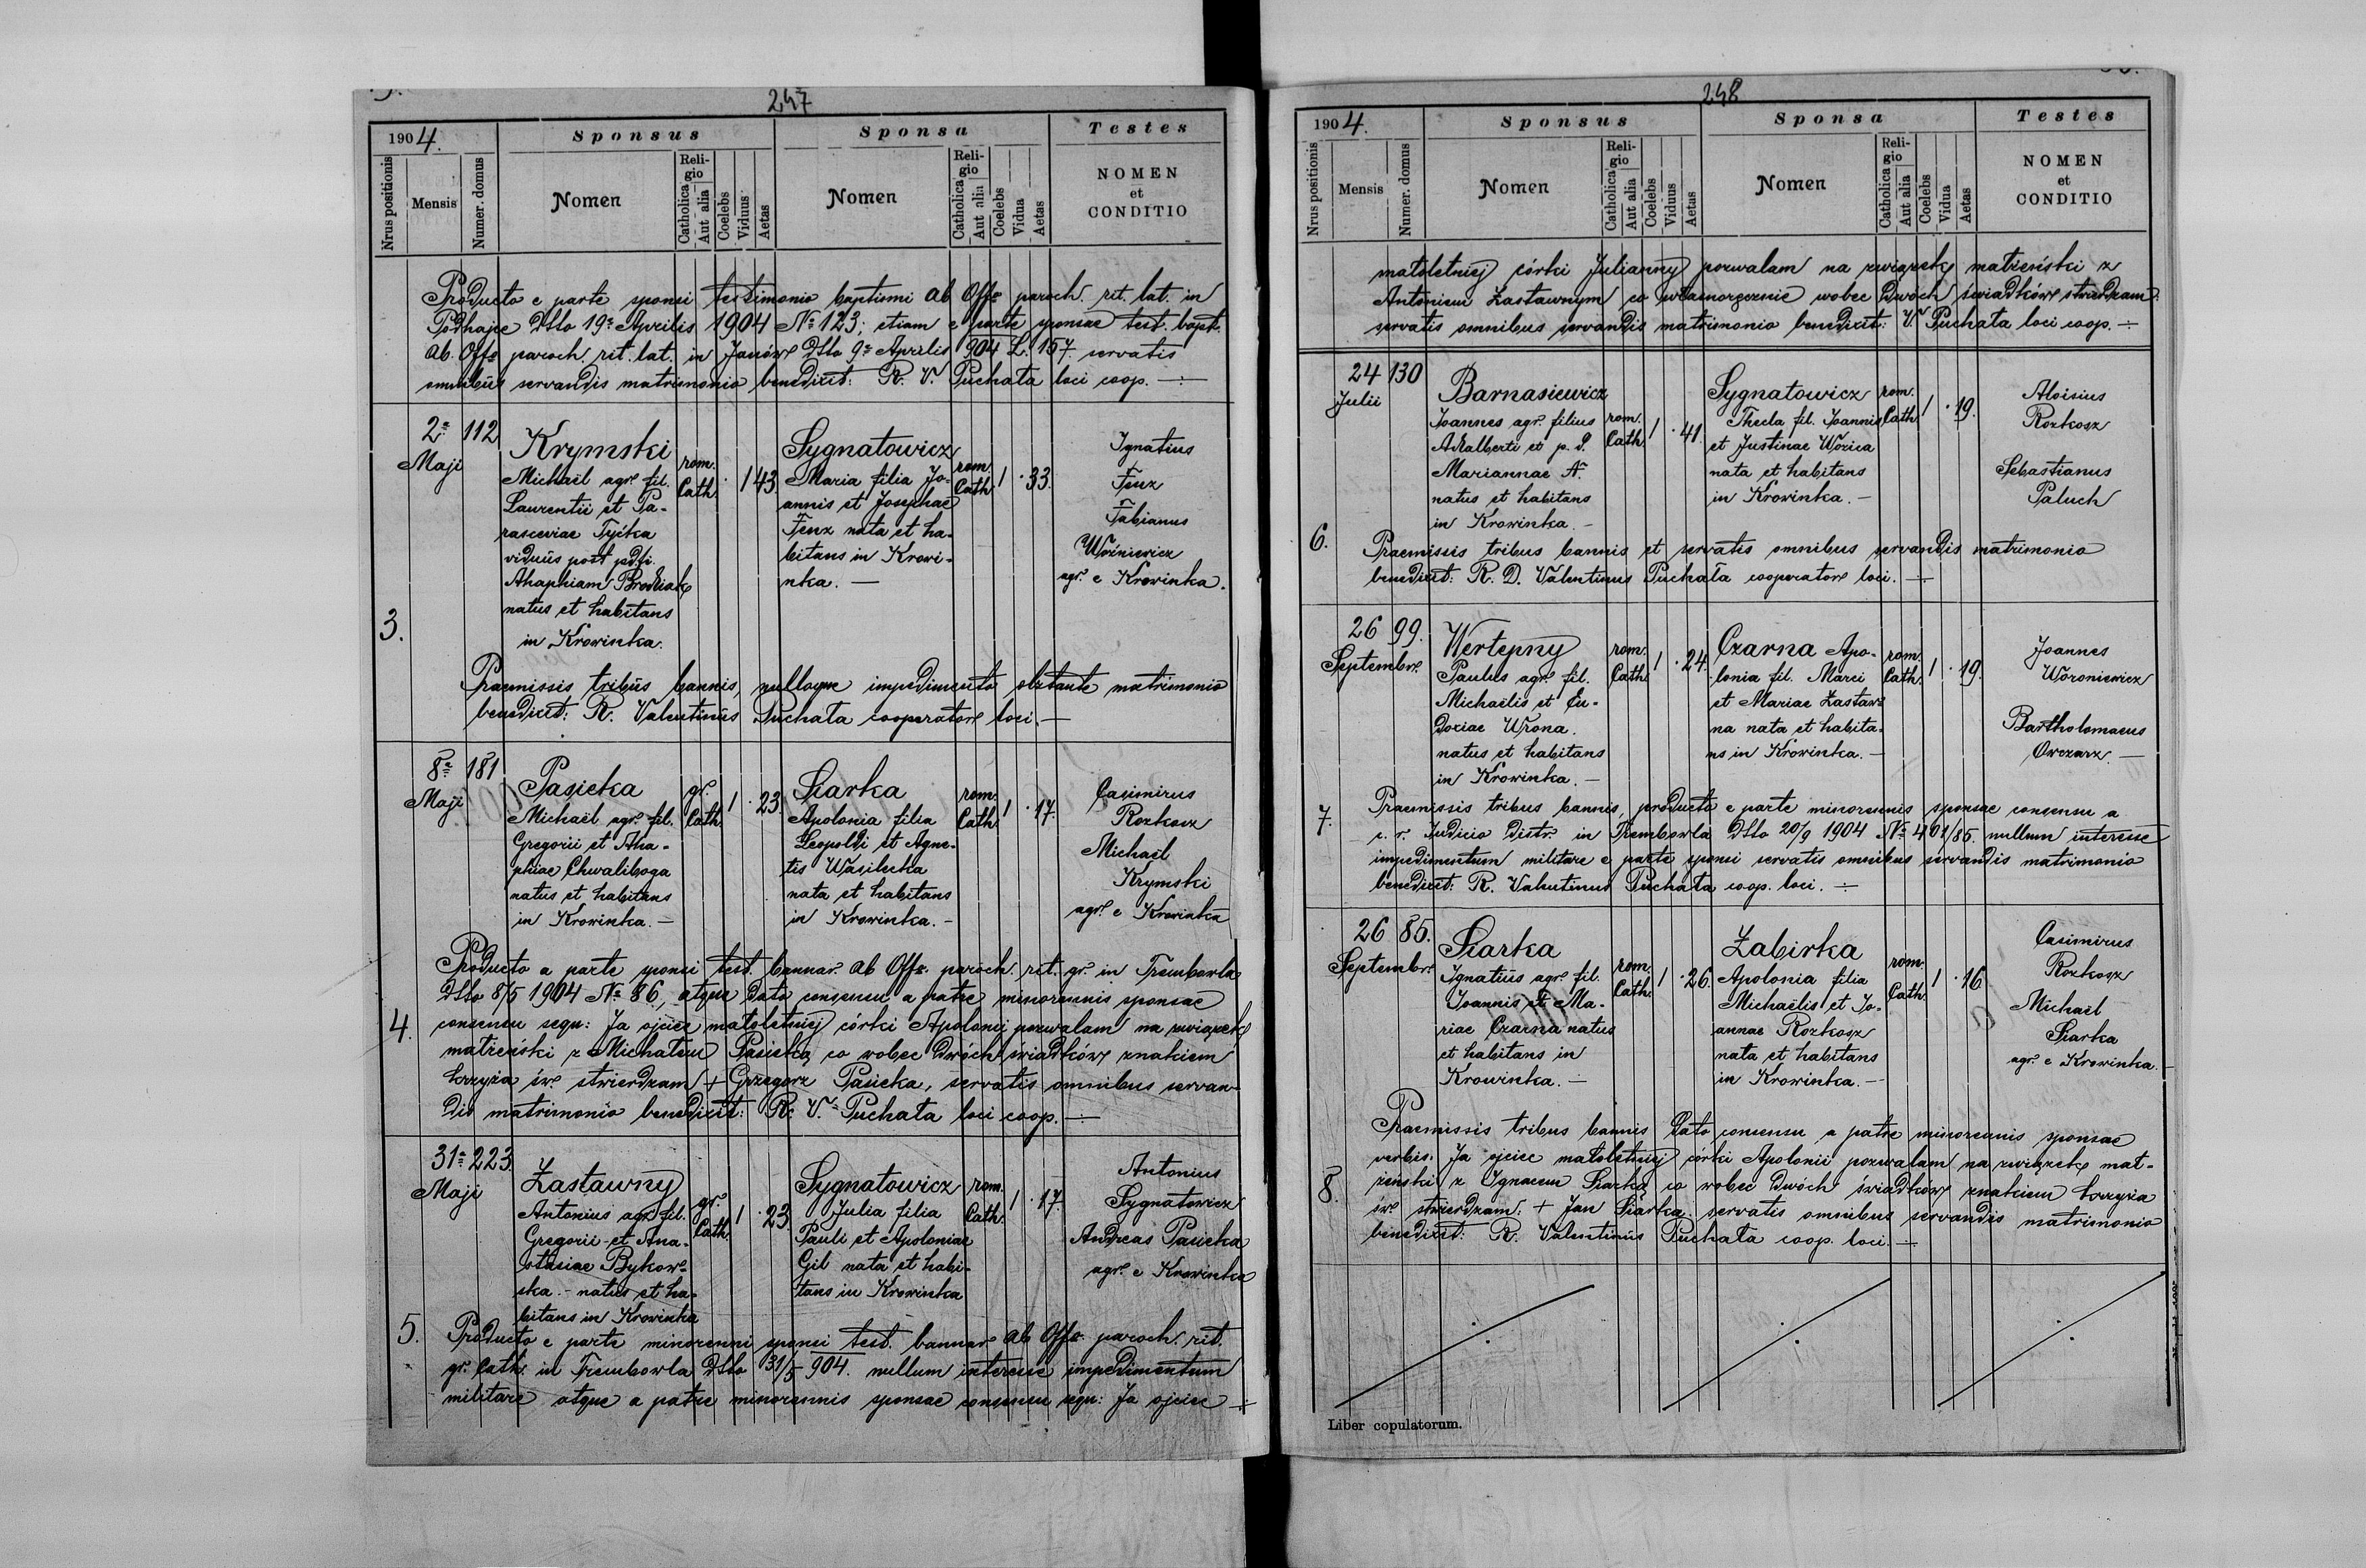 247
1904.
Sponsus
Sponsa
Testes
Nrus positionis
Mensis
Numer. domus
Nomen
Religio
Catholica
Aut alia
Coelebs
Viduus
Aetas
Nomen
Religio
Catholica
Aut alia
Coelebs
Vidua
Aetas
NOMEN
et
CONDITIO
Producto e parte sponsi testimonio baptismi ab Offo paroch. rit. lat. in
Podhajce dtto 19ª Aprilis 1904 Nº 123; etiam e parte sponsae test. bapt.
ab. Offo paroch. rit. lat. in Janów dtto 9ª Aprilis 904 L. 157. servatis
omnibus servandis matrimonio benedixit: R. V. Puchata loci coop. —
3.
2ª Maji
112
Krymski
Michaël agr. fil.
Laurentii et Pa-
rasceviae Tyćka
viduus post pdf.
Ahaphiam Brodziak
natus et habitans
in Krowinka.
rom. Cath.
1
43.
Sygnatowicz
Maria filia Jo-
annis et Josephae
Fenz nata et ha-
bitans in Krowi-
nka. —
rom. Cath.
1
33.
Ignatius
Fenz
Fabianus
Woźniewicz
agr. e Krowinka.
Praemissis tribus bannis, nulloque impedimento obstante matrimonio
benedixit: R. Valentinus Puchata cooperator loci. —
4.
8ª Maji
181
Pasieka
Michaël agr. fil.
Gregorii et Aha-
phiae Chwaliboga
natus et habitans
in Krowinka. —
gr. Cath.
1
23.
Siarka
Apolonia filia
Leopoldi et Agne-
tis Wasilecka
nata et habitans
in Krowinka. -
rom. Cath.
1
17.
Casimirus
Rozkosz
Michaël
Krymski
agr. e Krowinka
Producto a parte sponsi test. bannar. ab Offo. paroch. rit. gr. in Trembowla
dtto 8/5 1904 Nº 86, atque dato consensu a patre minorennis sponsae
consensu sequ: Ja ojciec małoletniej córki Apolonij pozwalam na związek
małżeński z Michałem Pasieką co wobec dwóch świadków znakiem
krzyża św. stwierdzam + Grzegorz Pasieka, servatis omnibus servan-
dis matrimonio benedixit: R. V. Puchata loci coop. —
5.
31ª Maji
223.
Zastawny
Antonius agr. fil.
Gregorii et Ana-
stasiae Bykow-
ska. - natus et ha-
bitans in Krowinka
gr. Cath.
1
23.
Sygnatowicz
Julia filia
Pauli et Apoloniae
Gil nata et habi-
tans in Krowinka
rom. Cath.
1
17.
Antonius
Sygnatowicz
Andreas Pasieka
agr. e Krowinka
Producto e parte minorenni sponsi test. bannar. ab Offo. paroch. rit.
gr. Cath. in Trembowla dtto 31/5 904. nullum interesse impedimentum
militare atque a patre minorennis sponsae consensu sequ: Ja ojciec
248
1904.
Sponsus
Sponsa
Testes
Nrus positionis
Mensis
Numer. domus
Nomen
Religio
Catholica
Aut alia
Coelebs
Viduus
Aetas
Nomen
Religio
Catholica
Aut alia
Coelebs
Vidua
Aetas
NOMEN
et
CONDITIO
małoletniej córki Julianny pozwalam na związek małżeński z
Antonim Zastawnym co własnoręcznie wobec dwóch świadków stwierdzam.
servatis omnibus servandis matrimonio benedixit: V. Puchata loci coop. —
6.
24 Julii
130
Barnasiewicz
Joannes agr. filius
Adalberti et p. d.
Mariannae N.
natus et habitans
in Krowinka. -
rom. Cath.
1
41.
Sygnatowicz
Thecla fil. Joannis
et Justinae Woźna
nata et habitans
in Krowinka. —
rom. Cath.
1
19.
Aloisius
Rozkosz
Sebastianus
Paluch
Praemissis tribus bannis et servatis omnibus servandis matrimonio
benedixit: R. D. Valentinus Puchata cooperator loci. —
7.
26 Septembr.
99.
Wertepny
Paulus agr. fil.
Michaëlis et Eu-
doxiae Wrona.
natus et habitans
in Krowinka. —
rom. Cath.
1
24.
Czarna Apo-
lonia fil. Marci
et Mariae Zastaw-
na nata et habita-
ns in Krowinka. —
rom. Cath.
1
19.
Joannes
Woroniewicz
Bartholomaeus
Owczarz. —
Praemissis tribus bannis, producto e parte minorennis sponsae consensu a
c. r. Judicio distr. in Trembowla dtto 20/9 1904 Nº 401/85 nullum interesse
impedimentum militare e parte sponsi servatis omnibus servandis matrimonio
benedixit: R. Valentinus Puchata coop. loci. —
8.
26 Septembr.
85.
Siarka
Ignatius agr. fil.
Joannis et Ma-
riae Czarna natus
et habitans in
Krowinka. —
rom. Cath.
1
26.
Zabirka
Apolonia filia
Michaëlis et Jo-
annae Rozkosz
nata et habitans
in Krowinka. —
rom. Cath.
1
16
Casimirus
Rozkosz
Michaël
Siarka
agr. e Krowinka.
Praemissis tribus bannis dato consensu a patre minorennis sponsae
verbis: Ja ojciec małoletniej córki Apolonii pozwalam na związek mał-
żeński z Ignacem Siarką co wobec dwóch świadków znakiem krzyża
św. stwierdzam: + Jan Siarka. servatis omnibus servandis matrimonio
benedixit: R. Valentinus Puchata coop. loci. —
Liber copulatorum.